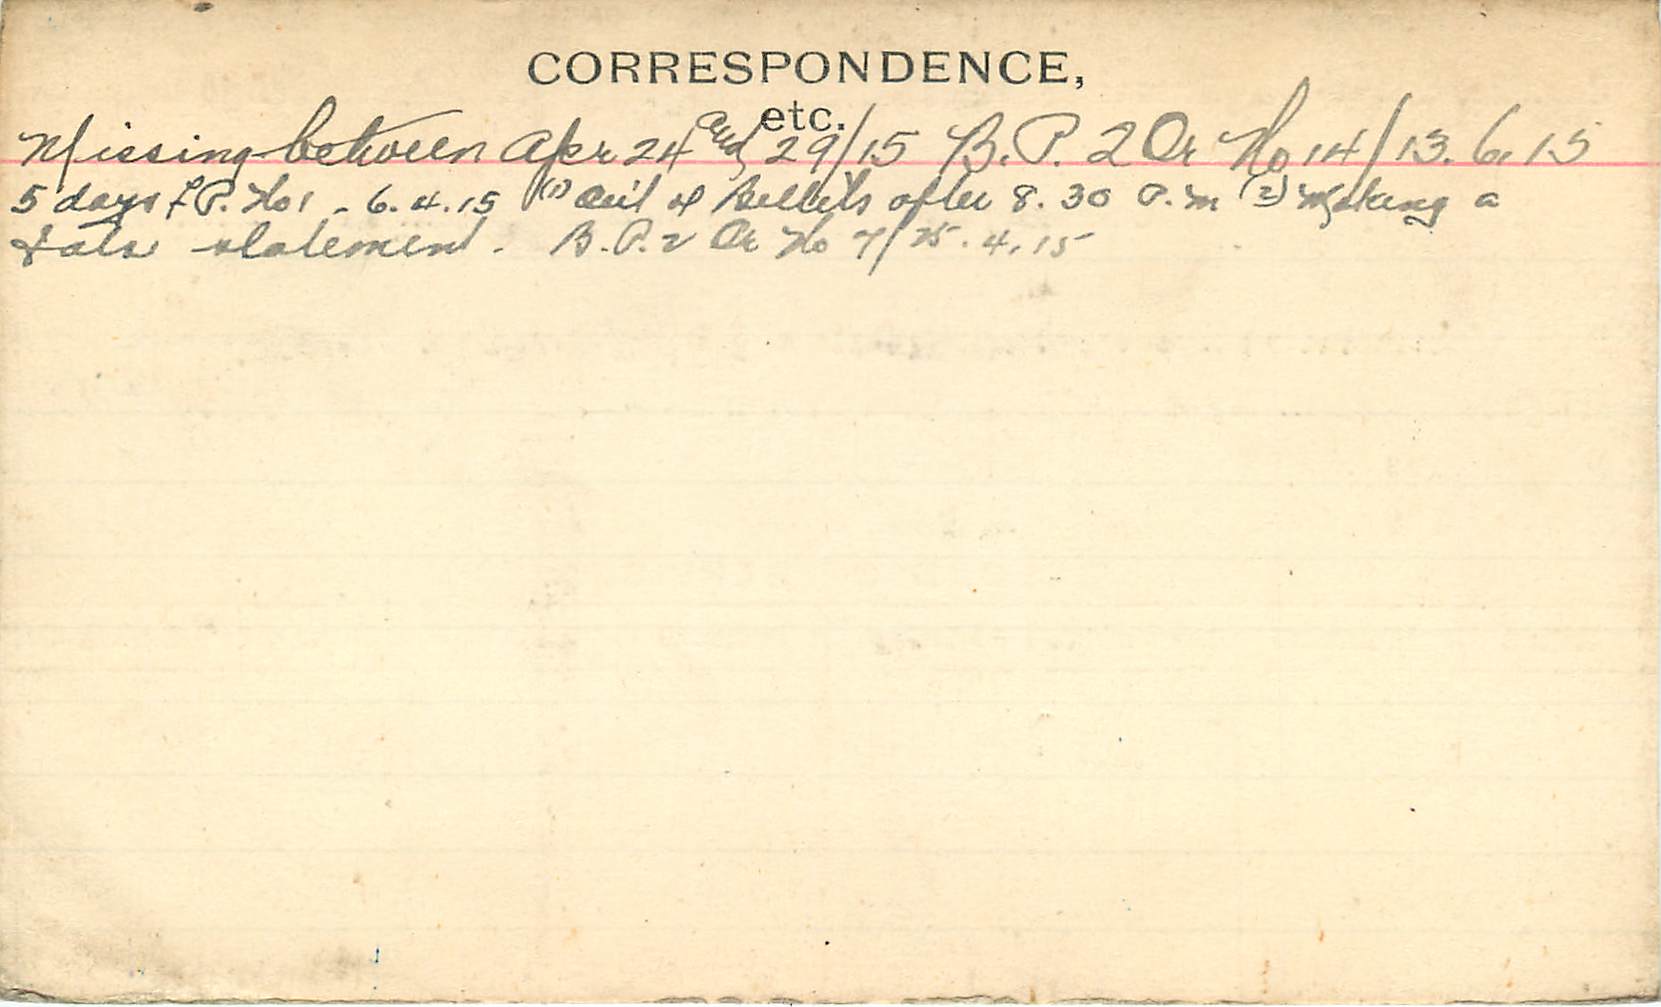 CORRESPONDENCE,
etc.
Missing between Apr 24 and 29/15 B. P. 2 Or No 14/13. 6. 15
5 days F.P. No 1 - 6. 4. 15 (1) Out of Billets after 8. 30 P. M (2) Making a
false statement. B. P. 2 Or No 7/25. 4. 15